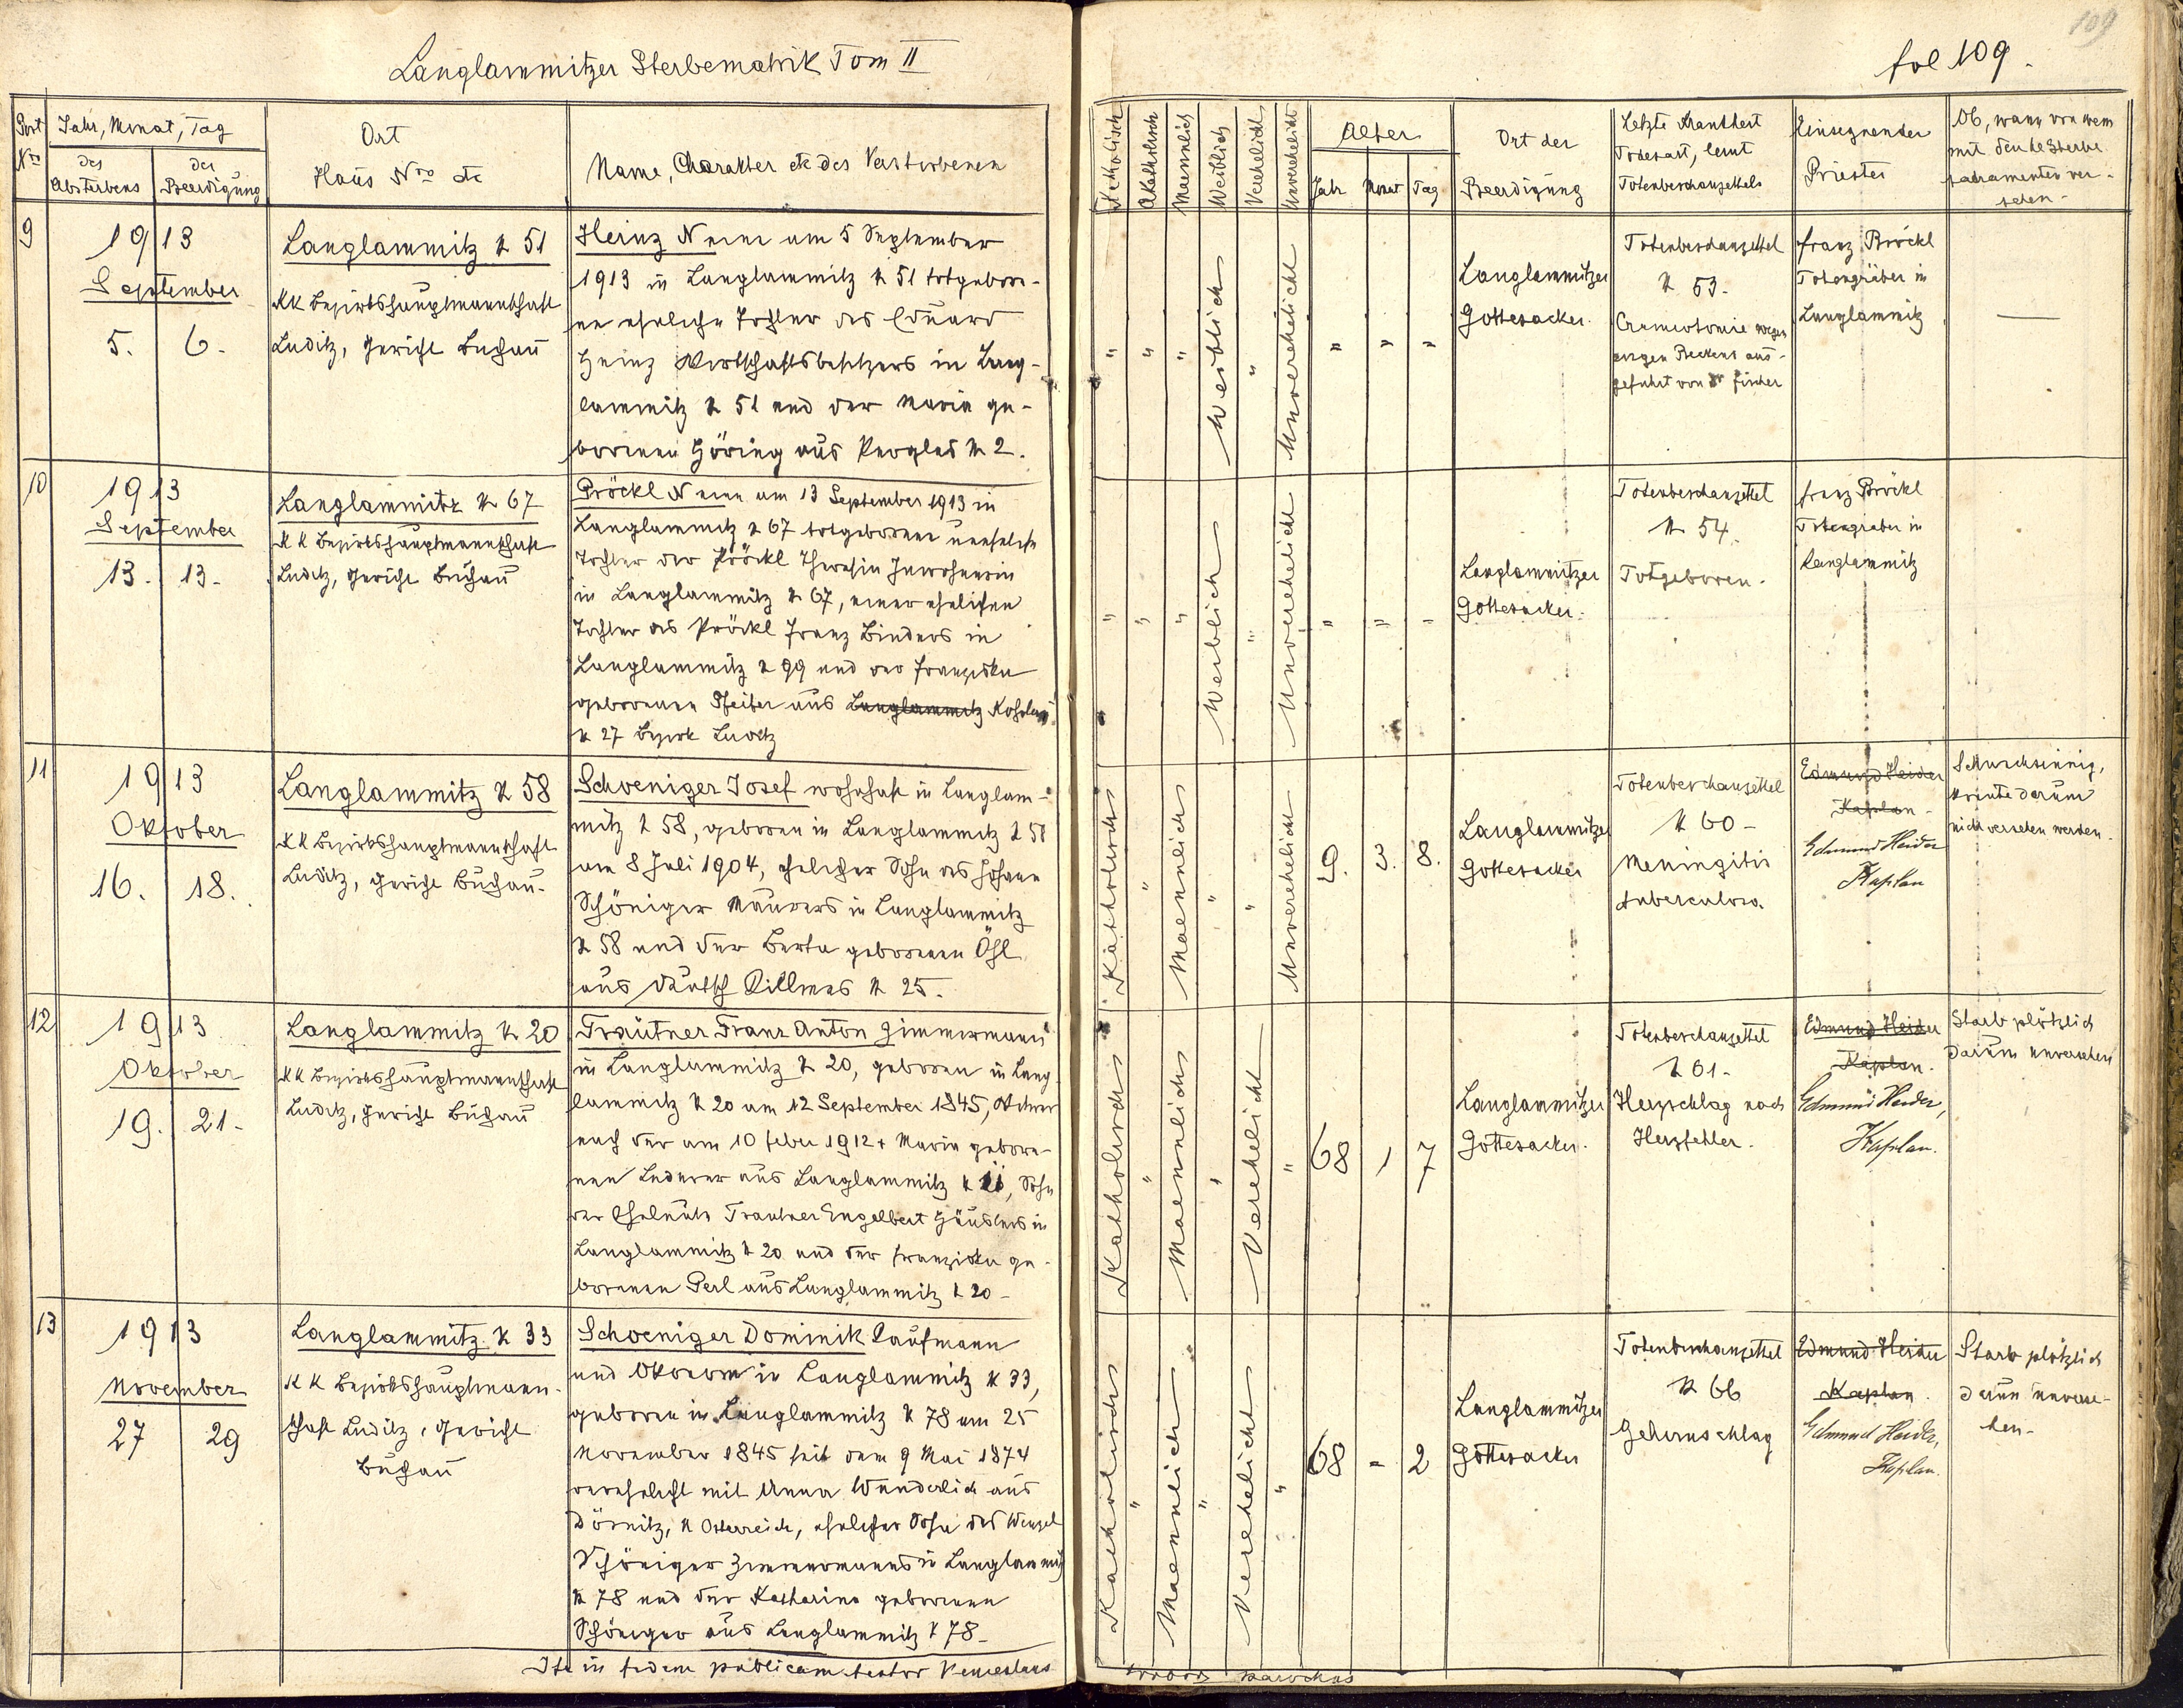 Langlammitzer Sterbematrik Tom II
Post Nro
Jahr, Monat, Tag
des Absterbens
der Beerdigung
Ort
Haus Nro etc
Name, Charakter etc des Verstorbenen
9
1913
September
5. 6.
Langlammitz N 51
KK Bezirkshauptmannschaft
Luditz, Gericht Buchau
Heinz N eine am 5 September
1913 in Langlammitz N 51 totgebore-
ne eheliche Tochter des Eduard
Heinz Wirtschaftsbesitzers in Lang-
lammitz N 51 und der Maria ge-
borenen Höring aus Perglas N 2.
10
1913
September
13. 13.
Langlammitz N 67
KK Bezirkshauptmannschaft
Luditz, Gericht Buchau
Pröckl N eine am 13 September 1913 in
Langlammitz N 67 totgeborene uneheliche
Tochter der Pröckl Theresia Inwohnerin
in Langlammitz N 67, einer ehelichen
Tochter des Pröckl Franz Binders in
Langlammitz N 99 und der Franziska
geborenen aus Langlammitz
N 27 Bezirk Luditz
11
1913
Oktober
16. 18.
Langlammitz N 58
KK Bezirkshauptmannschaft
Luditz, Gericht Buchau.
Schoeniger Josef wohnhaft in Langlam-
mitz N 58, geboren in Langlammitz N 58
am 8 Juli 1904, ehelicher Sohn des Johann
Schöniger Maurers in Langlammitz
N 58 und der Berta geborenen Öhl
aus Deutsch Killmes N 25.
12
1913
Oktober
19. 21.
Langlammitz N 20
KK Bezirkshauptmannschaft
Luditz, Gericht Buchau
Trautner Franz Anton Zimmermann
in Langlammitz N 20, geboren in Lang
lammitz N 20 am 12 September 1845, Witwer
nach der am 10 Feber 1912 + Maria gebore-
nen Lederer aus Langlammitz N, Sohn
der Eheleute Trautner Engelbert Häuslers in
Langlammitz N 20 und der Franziska ge-
borenen Perl aus Langlammitz N 20-
13
1913
November
27 29
Langlammitz N 33
KK Bezirkshauptmann-
schaft Luditz, Gericht
Buchau
Schoeniger Dominik Kaufmann
und Ökonom in Langlammitz N 33,
geboren in Langlammitz N 78 am 25
November 1845 seit dem 9 Mai 1874
verehelicht mit Anna Wunderlich aus
N Österreich, ehelicher Sohn des Wenzel
Schöniger Zimmermanns in Langlammitz
N 78 und der Katharina geborenen
Schöniger aus Langlammitz N 78-
Ita in fidem publicam testor Venceslaus
109
fol 109.
Katholisch
Akatholisch
Maennlich
Weiblich
Verehelicht
Unverehelicht
Alter
Jahr Monat Tag
Ort der
Beerdigung
Letzte Krankheit
Todesart, laut
Totenbeschauzettels
Einsegnender
Priester
Ob, wann von wem
mit den hl Sterbe
sakramenten ver-
sehen-
" " " Weiblich " Unverehelicht " " "
Langlammitzer
Gottesacker.
Totenbeschauzettel
N 53-
Craniotomie wegen
engen Beckens aus-
geführt von Dr Fischer
Franz Pröckl
Totengräber in
Langlammitz
—
" " " Weiblich " Unverehelicht " = -
Langlammitzer
Gottesacker.
Totenbeschauzettel
N 54.
Totgeboren.
Franz Pröckl
Totengräber in
Langlammitz
Katholisch " Maennlich " " Unverehelicht 9. 3. 8.
Langlammitzer
Gottesacker
Totenbeschauzettel
N 60-
Meningitis
tuberculosa.
Edmund Heider
Kaplan
Edmund Heider
Kaplan
Schwachsinnig,
konnte darum
nicht versehen werden.
Katholisch " Maennlich " Verehelicht " 68 1 7
Langlammitzer
Gottesacker.
Totenbeschauzettel
N 61-
Herzschlag nach
Herzfehler.
Edmund Heider
Kaplan.
Edmund Heider,
Kaplan.
Starb plötzlich
darum unversehen
Katholisch " Maennlich " Verehelicht " 68 - 2
Langlammitzer
Gottesacker
Totenbeschauzettel
N 66
Gehirnschlag
Edmund Heider
Kaplan.
Edmund Heider,
Kaplan.
Starb plötzlich
darum unverse-
hen-
parochus